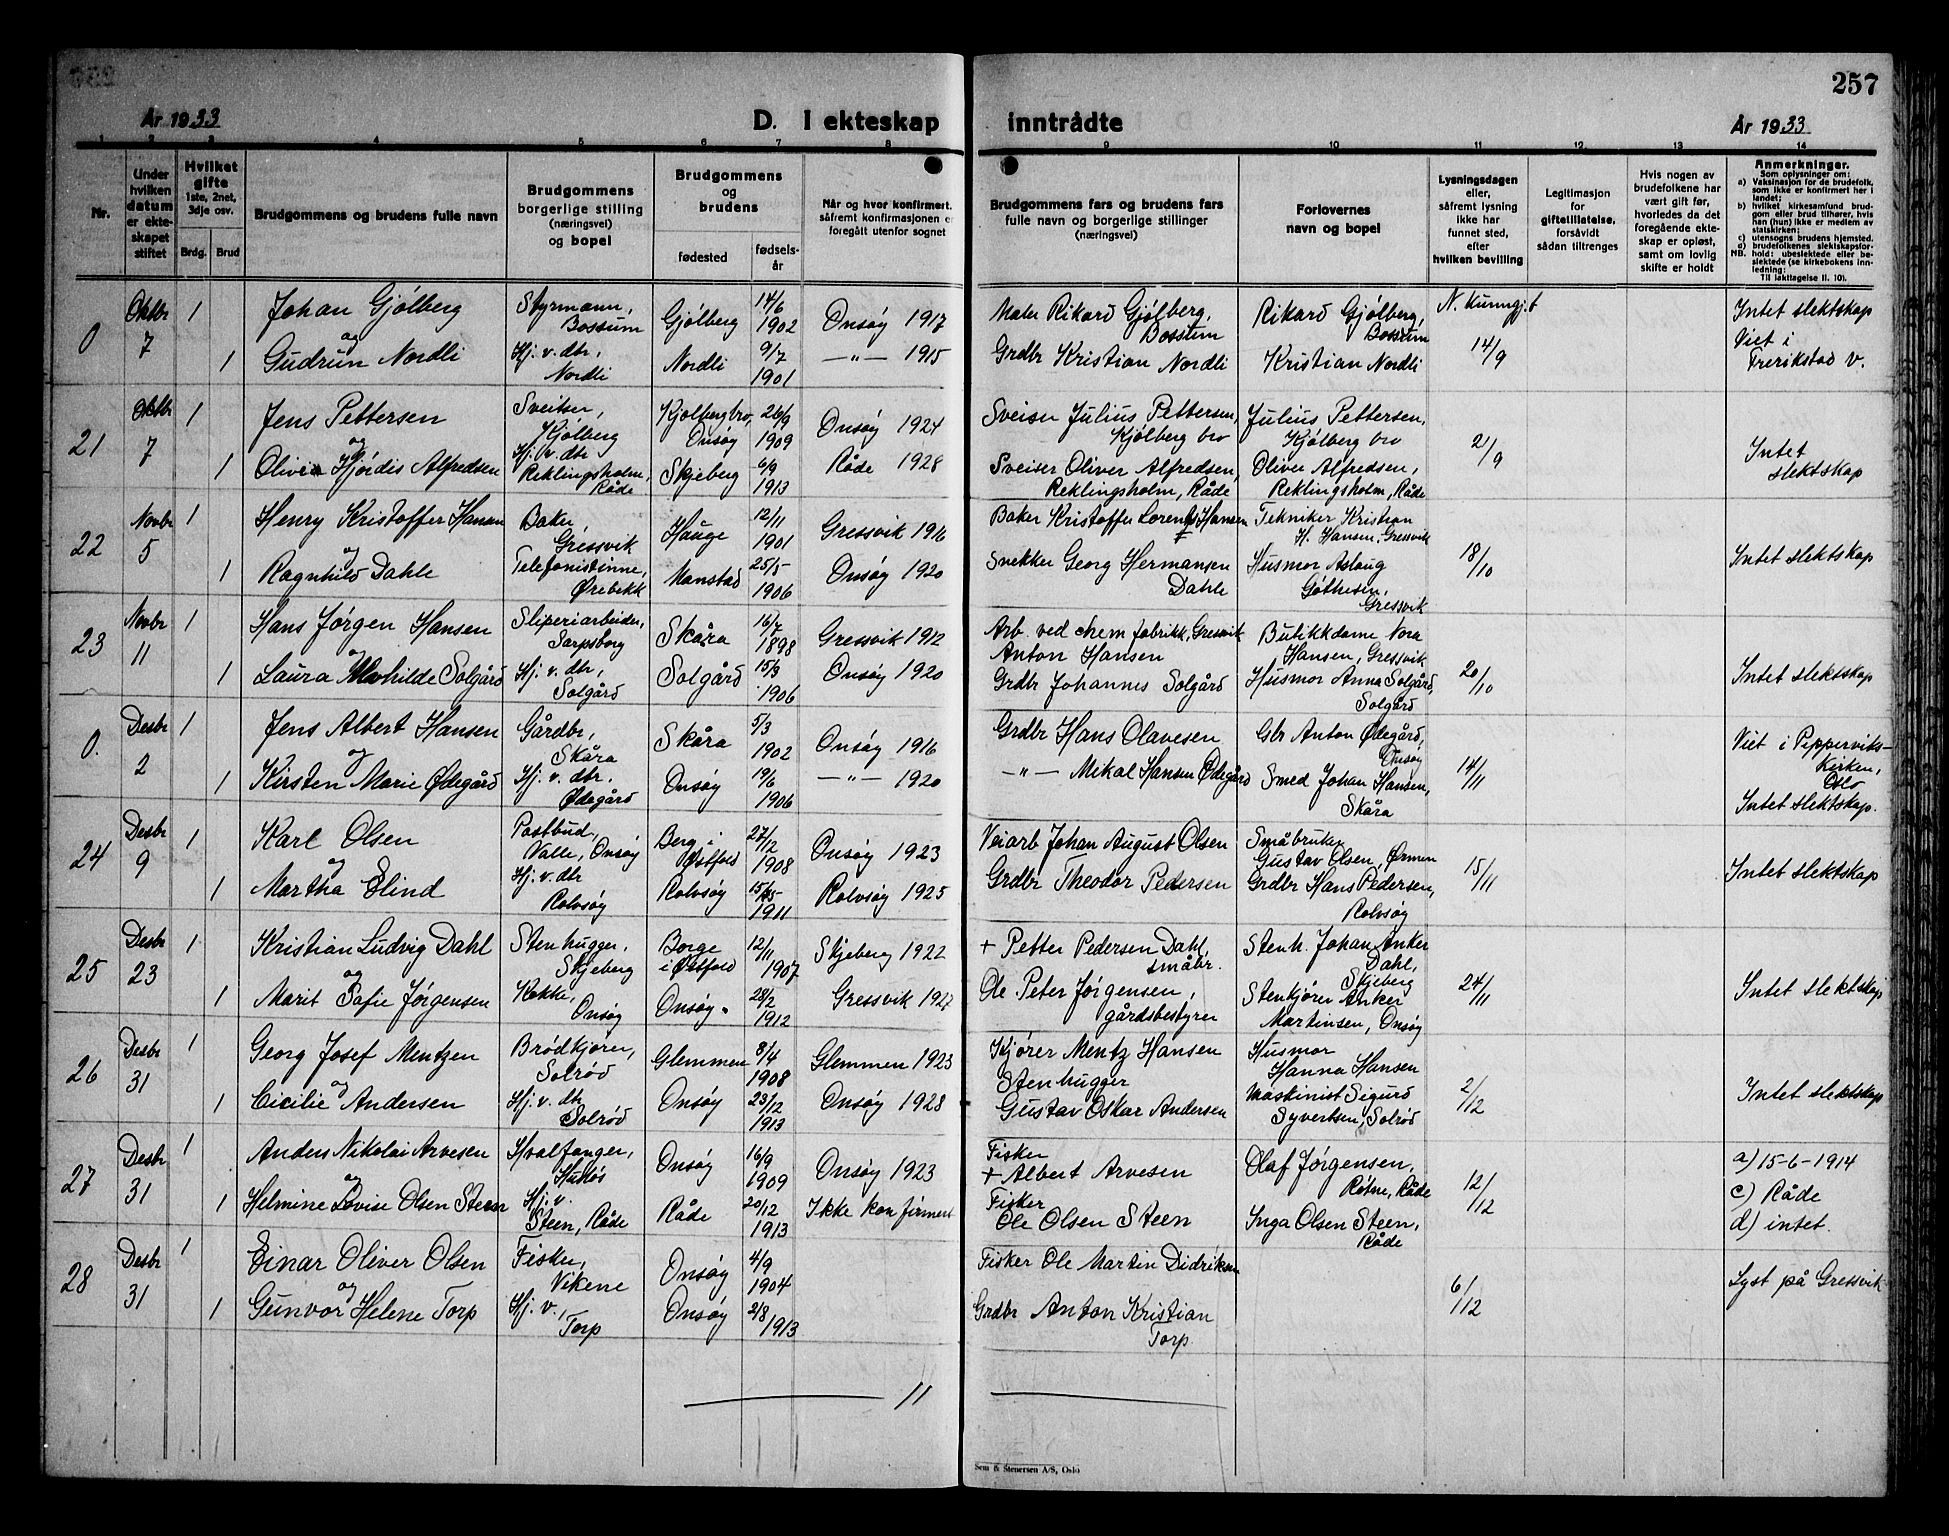 257
År 1933
D. I ekteskap inntrådte
År 1933
1 2 3 4 5 6 7 8 9 10 11 12 13 14
Nr.
Under
hvilken
datum
er ekte-
skapet
stiftet
Hvilket
gifte
1ste, 2net,
3dje osv.
Brdg. Brud
Brudgommens og brudens fulle navn
Brudgommens
borgerlige stilling
(næringsvei)
og bopel
Brudgommens
og
brudens
fødested
fødsels-
år
Når og hvor konfirmert,
såfremt konfirmasjonen er
foregått utenfor sognet
Brudgommens fars og brudens fars
fulle navn og borgerlige stillinger
(næringsvei)
Forlovernes
navn og bopel
Lysningsdagen
eller,
såfremt lysning
ikke har
funnet sted,
efter
hvilken bevilling
Legitimasjon
for
giftetillatelse,
forsåvidt
sådan tiltrenges
Hvis nogen av
brudefolkene har
vært gift før,
hvorledes da det
foregående ekte-
skap er opløst,
samt om lovlig
skifte er holdt
Anmerkninger.
Som oplysninger om:
a) Vaksinasjon for de brudefolk,
som ikke er konfirmert her i
landet;
b) hvilket kirkesamfund brud-
gom eller brud tilhører, hvis
han (hun) ikke er medlem av
statskirken;
c) utensogns brudens hjemsted.
d) brudefolkenes slektskapsfor-
NB. hold: ubeslektede eller be-
slektede (se kirkebokens inn-
ledning:
Til iakttagelse II. 10).
0
Oktbr
7
1
Johan Gjølberg
og
Styrmann,
Bossum
Gjølberg
14/6
1902
Onsøy 1917
Rikard Gjølberg,
Bossum
Rikard Gjølberg,
Bossum
N. Kunngj.t
14/9
Intet slektskap
Viet i
Frerikstad v.
1
Gudrun Nordli
Hj. v. dtr,
Nordli
Nordli
9/7
1901
— " — 1915
Grdbr Kristian Nordli
Kristian Nordli
21
Oktbr
7
1
Jens Pettersen
og
Sveitser,
Kjølberg
Kjølberg bro,
Onsøy
26/9
1909
Onsøy 1924
Sveiser Julius Pettersen,
Kjølberg bro
Julius Pettersen,
Kjølberg bro
2/9
Intet
slektskap
1
Olivia Hjørdis Alfredsen
Hj. v. dtr
Reklingsholm,
Råde
Skjeberg
6/9
1913
Råde 1928
Sveiser Oliver Alfredsen,
Reklingsholm, Råde
Oliver Alfredsen,
Reklingsholm, Råde
22
Novbr
5
1
Henry Kristoffer Hansen
og
Baker,
Gressvik
Hauge
12/11
1901
Gressvik 1916
Baker Kristoffer Lorents Hansen
Tekniker Kristian
H. Hansen, Gressvik
18/10
Intet slektskap
1
Ragnhild Dahle
Telefonistinne,
Ørebekk
Manstad
25/5
1906
Onsøy 1920
Snekker Georg Hermansen
Dahle
Husmor Aslaug
Gøthesen,
Gressvik
23
Novbr
11
1
Hans Jørgen Hansen
og
Sliperiarbeider,
Sarpsborg
Skåra
16/7
1898
Gressvik 1912
Arb. ved chem fabrikk, Gressvik
Anton Hansen
Butikkdame Nora
Hansen, Gressvik
20/10
Intet slektskap
1
Laura Mathilde Solgård
Hj. v. dtr,
Solgård
Solgård
15/9
1906
Onsøy 1920
Grdbr Johannes Solgård
Husmor Anna Solgård,
Solgård
0.
Desbr
2
1
Jens Albert Hansen
og
Gårdbr,
Skåra
Skåra
5/3
1902
Onsøy 1916
Grdbr Hans Olavesen
Gbr Anton Ødegård,
Onsøy
14/11
Viet i Pepperviks-
Kirken,
Oslo
Intet slektskap.
1
Kirsten Marie Ødegård
Hj. v. dtr.
Ødegård
Onsøy
19/6
1906
— " — 1920
— " — Mikal Hansen Ødegård
Smed Johan Hansen,
Skåra
24
Desbr
9
1
Karl Olsen
og
Postbud,
Valle, Onsøy
Berg i
Østfold
27/12
1908
Onsøy 1923
Veiarb Johan August Olsen
Småbruker
Gustav Olsen, Ørmen
15/11
Intet slektskap
1
Martha Elind
Hj. v. dtr
Rolvsøy
Rolvsøy
1911
Rolvsøy 1925
Grdbr Theodor Pedersen
Grdbr Hans Pedersen,
Rolvsøy
25
Desbr
23
1
Kristian Ludvig Dahl
og
Stenhugger,
Skjeberg
Borge
i Østfold
12/11
1907
Skjeberg 1922
+ Petter Pedersen Dahl,
småbr.
Stenh. Johan Anker
Dahl,
Skjeberg
24/11
Intet slektskap
1
Marit Sofie Jørgensen
Kokke,
Onsøy
Onsøy
28/2
1912
Gressvik 1927
Ole Peter Jørgensen,
gårdsbestyrer
Stenkjører Anker
Martinsen, Onsøy
26
Desbr
31
1
Georg Josef Mentzen
og
Brødkjører,
Solrød
Glemmen
8/4
1908
Glemmen 1923
Kjører Mentz Hansen
Husmor
Hanna Hansen
2/12
Intet slektskap
1
Cicilie Andersen
Hj. v. dtr
Solrød
Onsøy
23/12
1913
Onsøy 1928
Stenhugger
Gustav Oskar Andersen
Maskinist Sigurd
Syvertsen, Solrød
27
Desbr
31
1
Anders Nikolai Arvesen
og
Hvalfanger,
Onsøy
16/9
1909
Onsøy 1923
Fisker
+ Albert Arvesen
Olaf Jørgensen,
Røtne, Råde
12/12
a) 15-6-1914
c) Råde
d) intet.
1
Helmine Lovise Olsen Steen
Hj. v.
Steen, Råde
Råde
20/12
1913
Ikke konfirmert
Fisker
Ole Olsen Steen
Inga Olsen Steen,
Råde
28
Desbr
31
1
Einar Oliver Olsen
og
Fisker,
Vikene
Onsøy
4/9
1904
Fisker Ole Martin Didriksen
6/12
Lyst på Gressvik
1
Gunvor Helene Torp
Hj. v.,
Torp
Onsøy
2/8
1913
Grdbr Anton Kristian
Torp
11
Sem & Stenersen A/S, Oslo